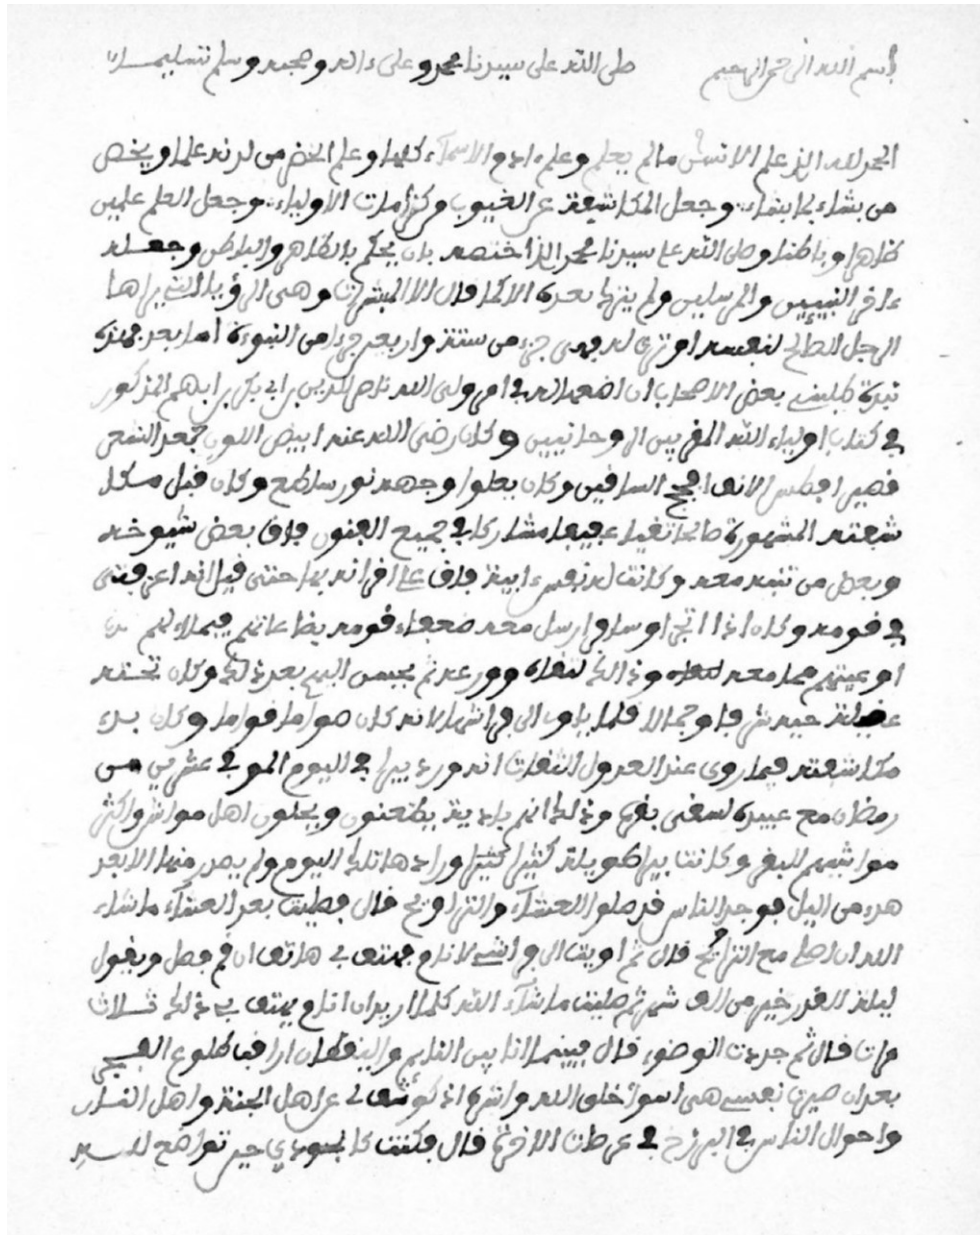 بسم الله الرحمن الرحيم صلى الله على سيدنا محمد وعلى ءاله وصحبه وسلم تسليما
الحمد لله الذي علم الانسان ما لم يعلم وعلم ءادم الاسماء كلها وعلم الخضر من لدنه علما ويخص
من يشاء بما يشاء وجعل المكاشفة عن الغيوب من كرامات الاولياء وجعل العلم علمين
ظاهرا وباطنا وصلى الله على سيدنا محمد الذي اختصه بان يحكم بالظاهر والباطن وجعله
ءاخر النبيين والمرسلين ولم يترك بعده الا كما قال الا المبشرات وهي الرؤيا التي يراها
الرجل الصالح لنفسه او ترى له فهي جزء من ستة واربعين جزءا من النبوءة اما بعد فهذه
نبذة طلبني بعض الاصحاب ان اضعها له في امر ولي الله ناصر الدين بن ابي بكر بن ابهم المذكور
في كتاب اولياء الله المقربين الروحانيين وكان رضي الله عنه ابيض اللون جعد الشعر
قصير افطس الانف افحج الساقين وكان يعلوا وجهه نور ساطع وكان قبل مكا
شفته المشهورة صالحا تقيا عفيفا مشاركا في جميع الفنون فاق بعض شيوخه
وبعض من تفقه معه وكانت له نفس ءابية فاق على اقرانه بها حتى قيل انه اعز فتى
في قومه وكان اذا اتجر او سافر ارسل معه ضعفاء قومه بضاعاتهم فيملأ لهم
اوعيتهم مما معه وذلك لتقاه وورعه ثم يحبس البيع بعد ذلك وكان تحته
عقيلة حيه شرفا وجمالا قلما ياوي الى فراشها لانه كان صواما قواما وكان بدء
مكاشفته فيما روي عند العدول الثقات انه ورد بيرا في اليوم الموفي عشرين من
رمضان مع عبيده لسقي بقر وذلك انهم بادية يظعنون ويحلون اهل مواش واكثر
مواشيهم البقر وكانت بيرا طويلة كثيرا ورادها تلك اليوم ولم يصدر منها الا بعد
هدء من اليل فوجد الناس قد صلوا العشاء والتراويح قال فصليت بعد العشاء ما شاء
الله ان اصلي مع التراويح قال ثم اويت الى فراشي لانام فهتف بي هاتف ان قم فصل ويقول
ليلة القدر خير من الف شهر ثم صليت ما شاء الله كلما اريد ان انام يهتف بي ذلك ثلاث
مرات قال ثم جددت الوضوء قال فبينما انا بين النايم واليقظان اراقب طلوع الفجر
بعد ان صيرت نفسي هي اسوأ خلق الله واشرها اذ كوشف لي عن اهل الجنة واهل النار
واحوال الناس في البرزخ في عرصات الاخرة قال فكنت كالجودي حين تواضع لله